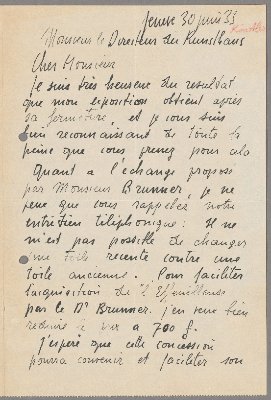 Genève 30 juin 33
Monsieur le Directeur du Kunsthaus
Cher Monsieur
Je suis très heureux du resultat
que mon exposition obtient après
sa fermeture, et je vous suis
bien reconnaissant de toute la
peine que vous prenez pour cela
Quant a l'échange proposé
par Monsieur Brunner, je ne
peux que vous rappeler notre
entretien téléphonique: Il ne
m'est pas possible de changer
une toile recente contre une
toile ancienne. Pour faciliter
l'acquisition de l'Effeuilleuse
par le Dr Brunner. j'en veux bien
reduire le prix a 700 f.
J'espère que cette concession
pourra convenir et faciliter son